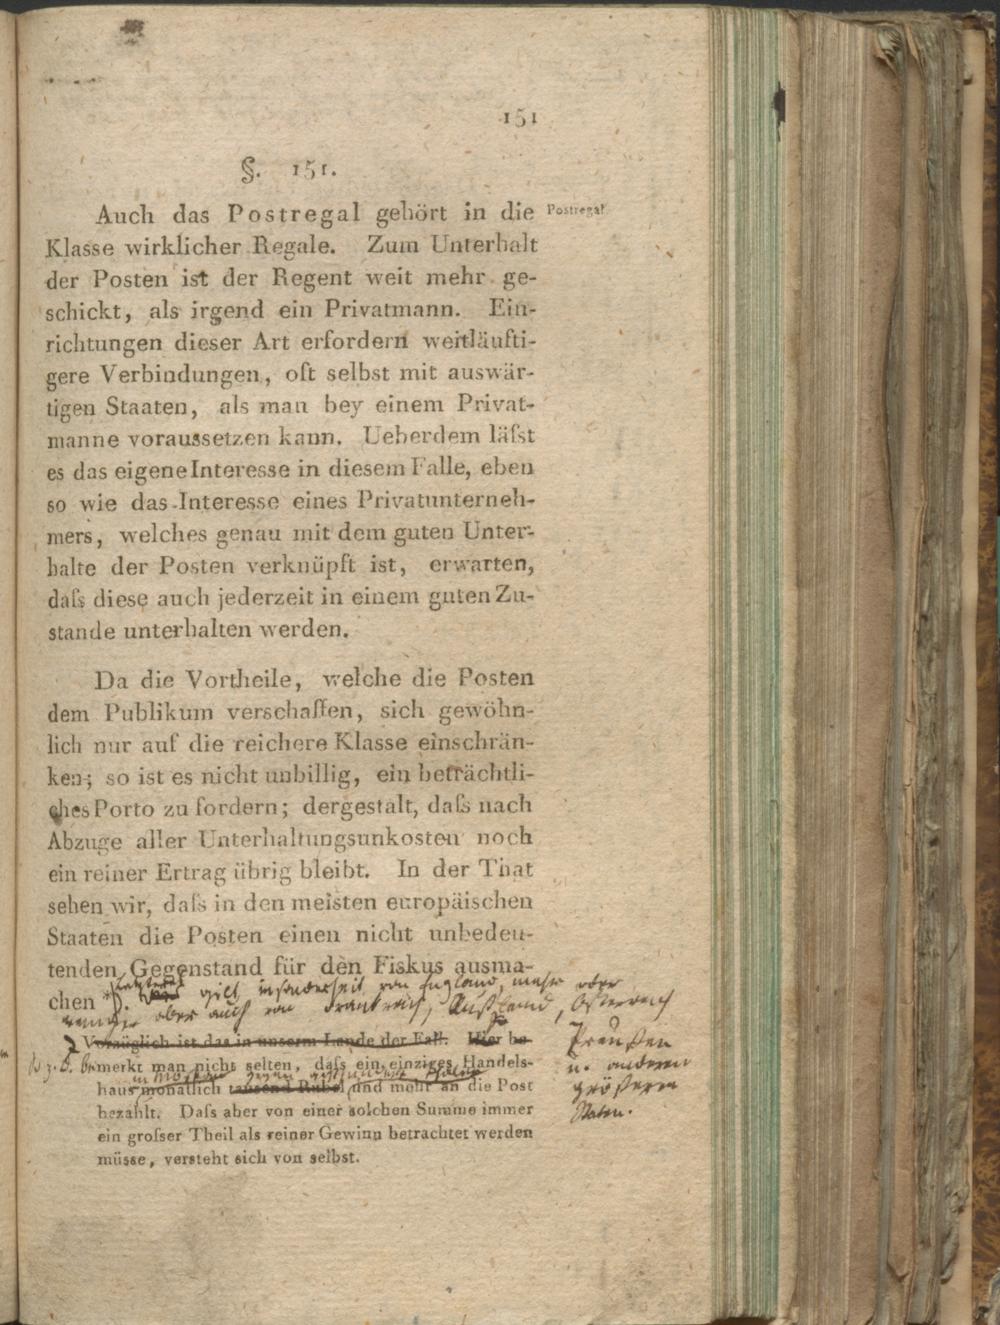 151
§. 151.
Auch das Postregal gehört in die Postregal
Klasse wirklicher Regale. Zum Unterhalt
der Posten ist der Regent weit mehr ge-
schickt, als irgend ein Privatmann. Ein-
richtungen dieser Art erfordern weitläufti-
gere Verbindungen, oft selbst mit auswär-
tigen Staaten, als man bey einem Privat-
manne voraussetzen kann. Ueberdem läſst
es das eigene Interesse in diesem Falle, eben
so wie das Interesse eines Privatunterneh-
mers, welches genau mit dem guten Unter-
halte der Posten verknüpft ist, erwarten,
daſs diese auch jederzeit in einem guten Zu-
stande unterhalten werden.
Da die Vortheile, welche die Posten
dem Publikum verschaffen, sich gewöhn-
lich nur auf die reichere Klasse einschrän-
ken; so ist es nicht unbillig, ein beträchtli-
ches Porto zu fordern; dergestalt, daſs nach
Abzuge aller Unterhaltungsunkosten noch
ein reiner Ertrag übrig bleibt. In der That
sehen wir, daſs in den meisten europäischen
Staaten die Posten einen nicht unbedeu-
tenden Gegenstand für den Fiskus ausma-
chen *).
gilt insonderheit von England, mehr oder
weniger aber auch von Frankreich, Rußland, Österreich
Preußen
u. anderen
größeren
Staten.
Vorzüglich ist das in unserm Lande der Fall. Hier be-
z. B. bemerkt man nicht selten, daſs ein einziges Handels-
in Moskau gegen
haus monatlich tausend Rubel und mehr an die Post
bezahlt. Daſs aber von einer solchen Summe immer
ein groſser Theil als reiner Gewinn betrachtet werden
müsse, versteht sich von selbst.